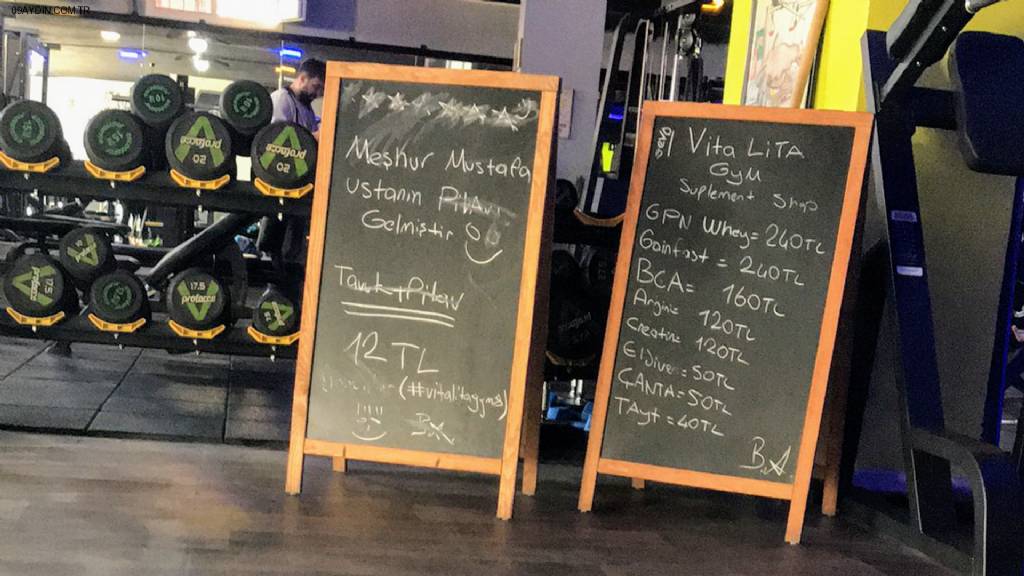 09AYDIN.COM.TR
Meşhur Mustafa
ustanın Pilavı
Gelmiştir
Tavuk+Pilav
12 TL
(#vitalitagyms)
Vita LiTA
GyM
Suplement Shop
GPN Whey=240TL
Gainfast = 240TL
BCA= 160TL
Arginine 120TL
Creatine 120TL
Eldiven=50TL
ÇANTA=50TL
TAyt=40TL
20
protocco
20
protocco
17.5
17.5
protocco